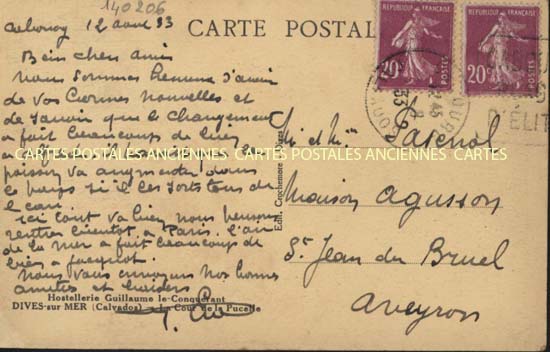 140206
12 aout 33
CARTE POSTALE
RÉPUBLIQUE FRANÇAISE
20c
POSTES
RÉPUBLIQUE FRANÇAISE
20c
POSTES
D'ÉLIT
Bien chers amis
Nous sommes heureux d'avoir
de vos bonnes nouvelles et
de savoir que le changement
a fait beaucoup de bien
CARTES POSTALES ANCIENNES CARTES POSTALES ANCIENNES CARTES POSTALES ANCIENNES
poisson va augmenter dans
le pays si il les sorts tous de
l'eau
ici tout va bien nous pensons
rentrer bientot a Paris. l'air
de la mer a fait beaucoup de
bien a Jacquot.
Nous vous envoyons nos bonnes
amities et baisers
Mr et Mme
Maison Agusson
St Jean du Bruel
Aveyron
Hostellerie Guillaume le Conquérant
DIVES-sur MER (Calvados) - La Cour de la Pucelle